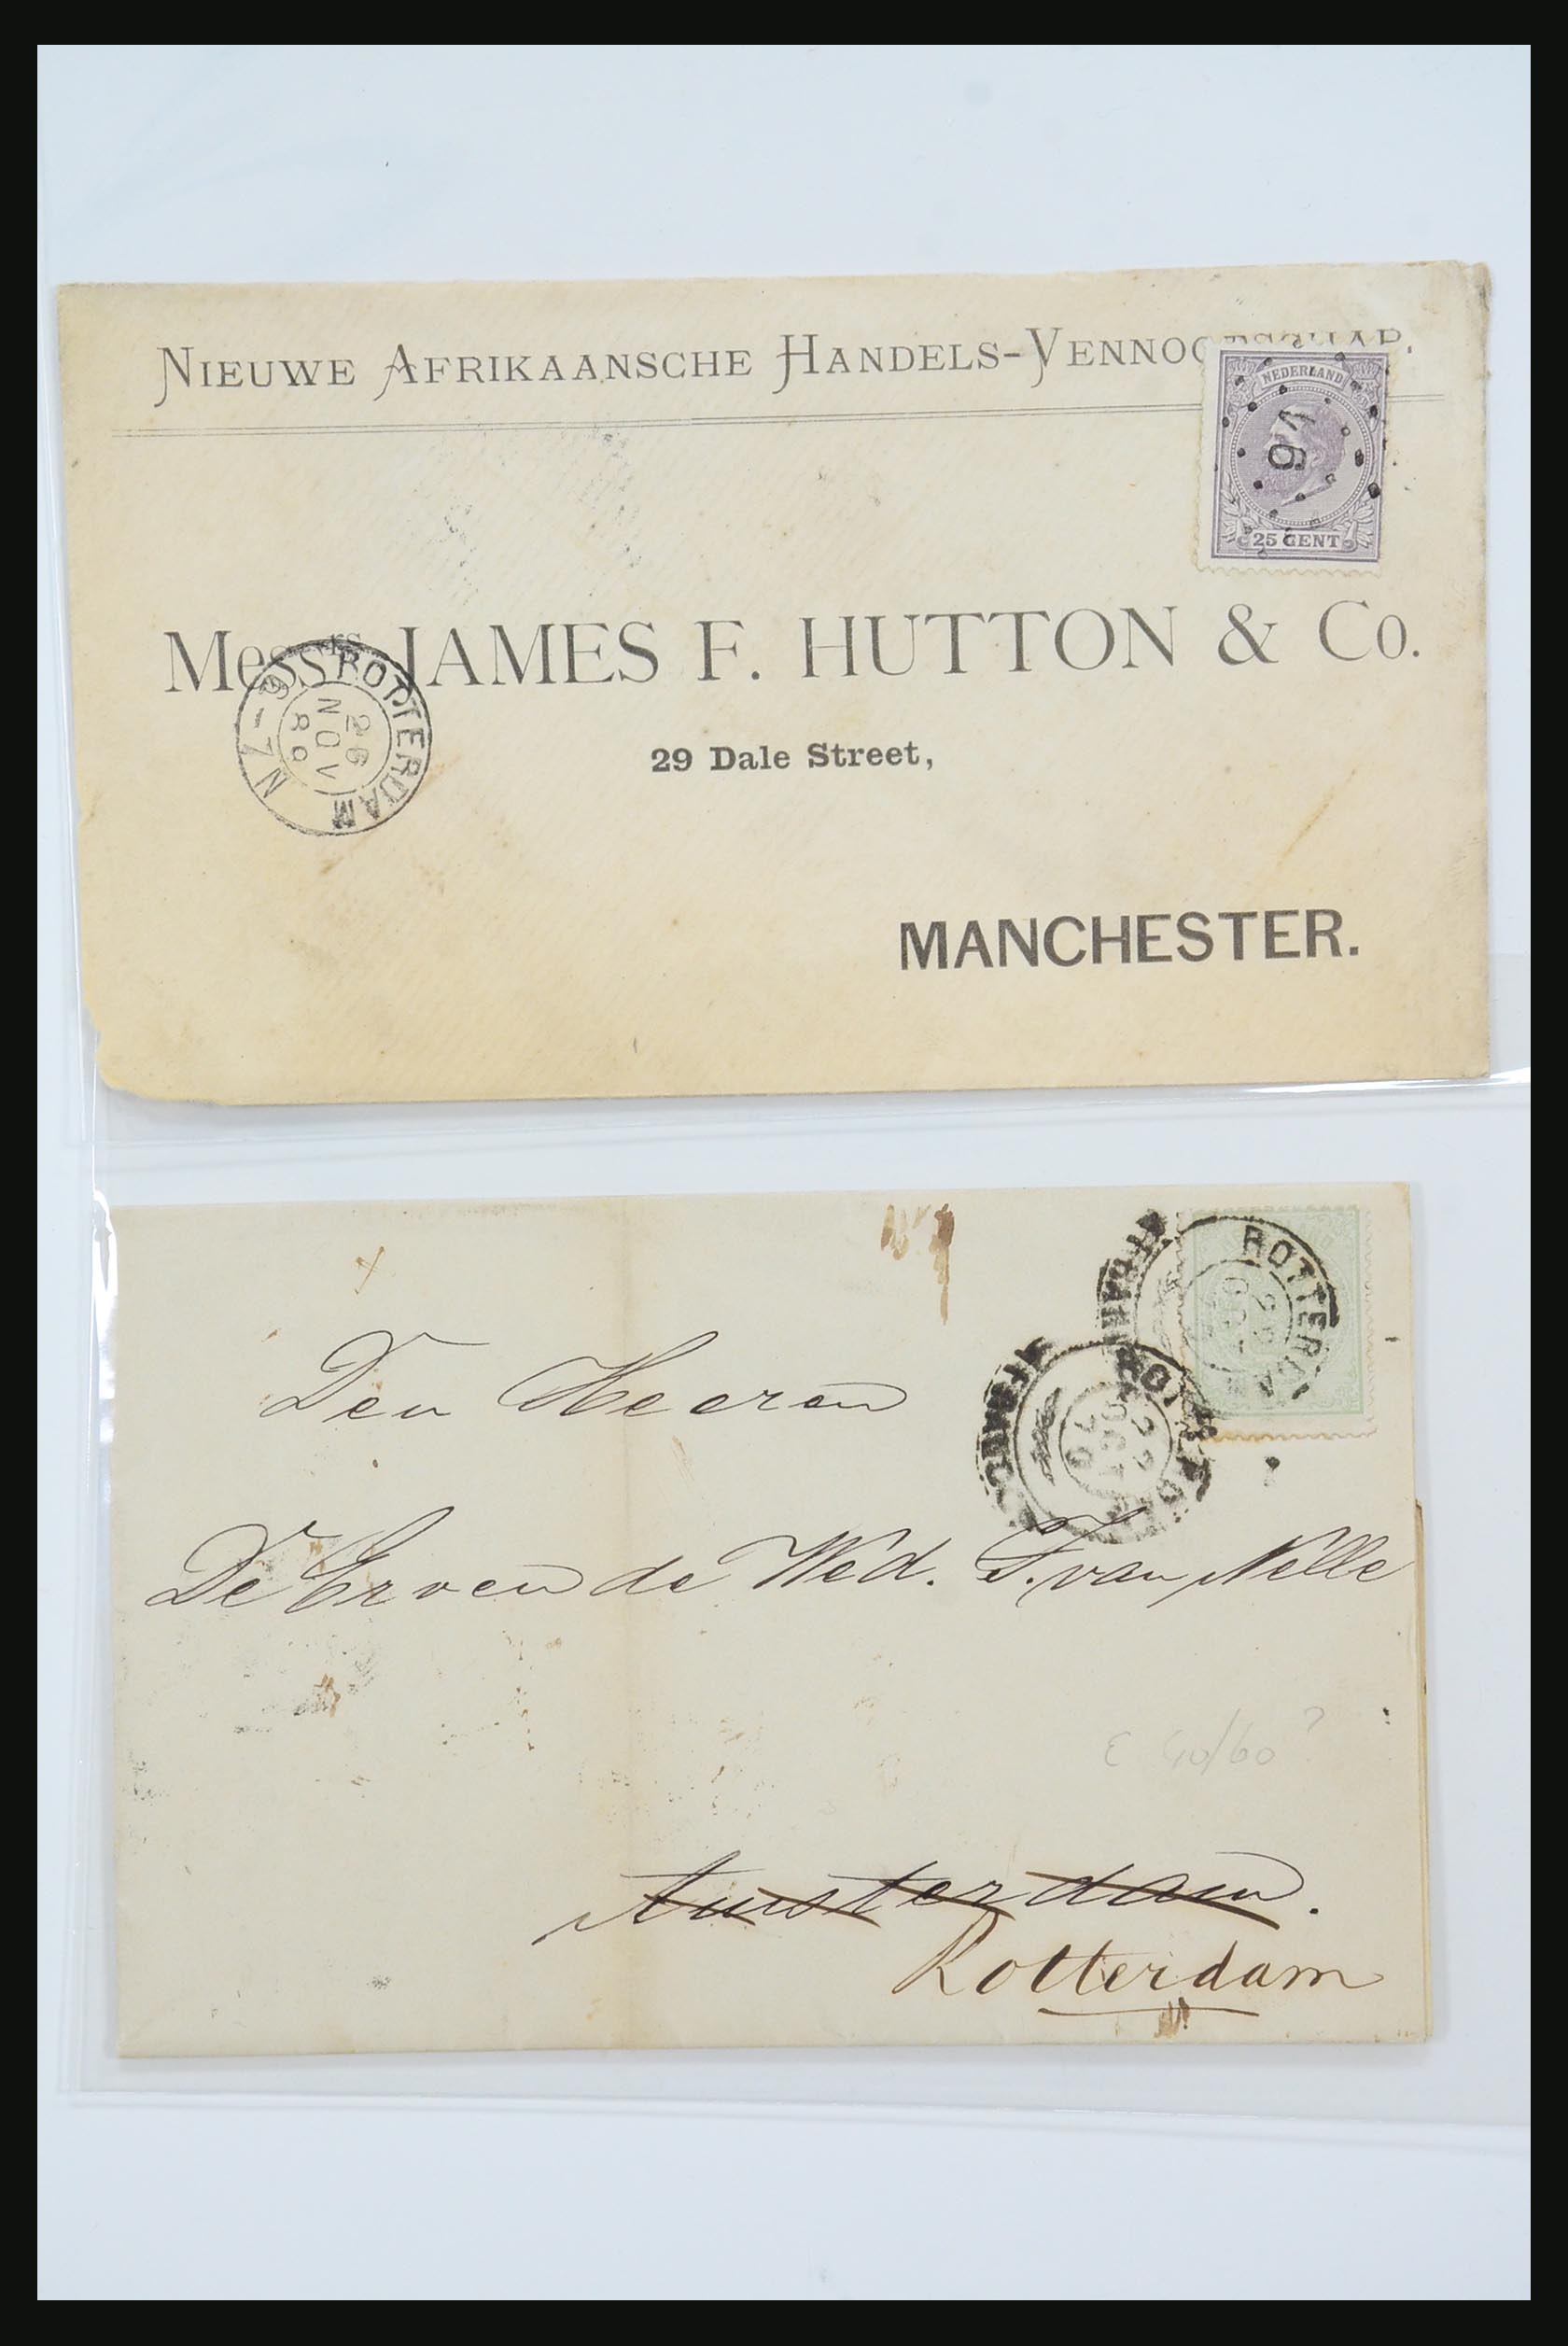 NIEUWE AFRIKAANSCHE HANDELS-VENNOOTSCHAP.
NEDERLAND
91
25 CENT
Messrs JAMES F. HUTTON & Co.
ROTTERDAM
26
NOV
80
7-
N
29 Dale Street,
MANCHESTER.
ROTTERDAM
Den Heeren
De Erven de Wed. J. van Nelle
40/60 ?
Amsterdam.
Rotterdam